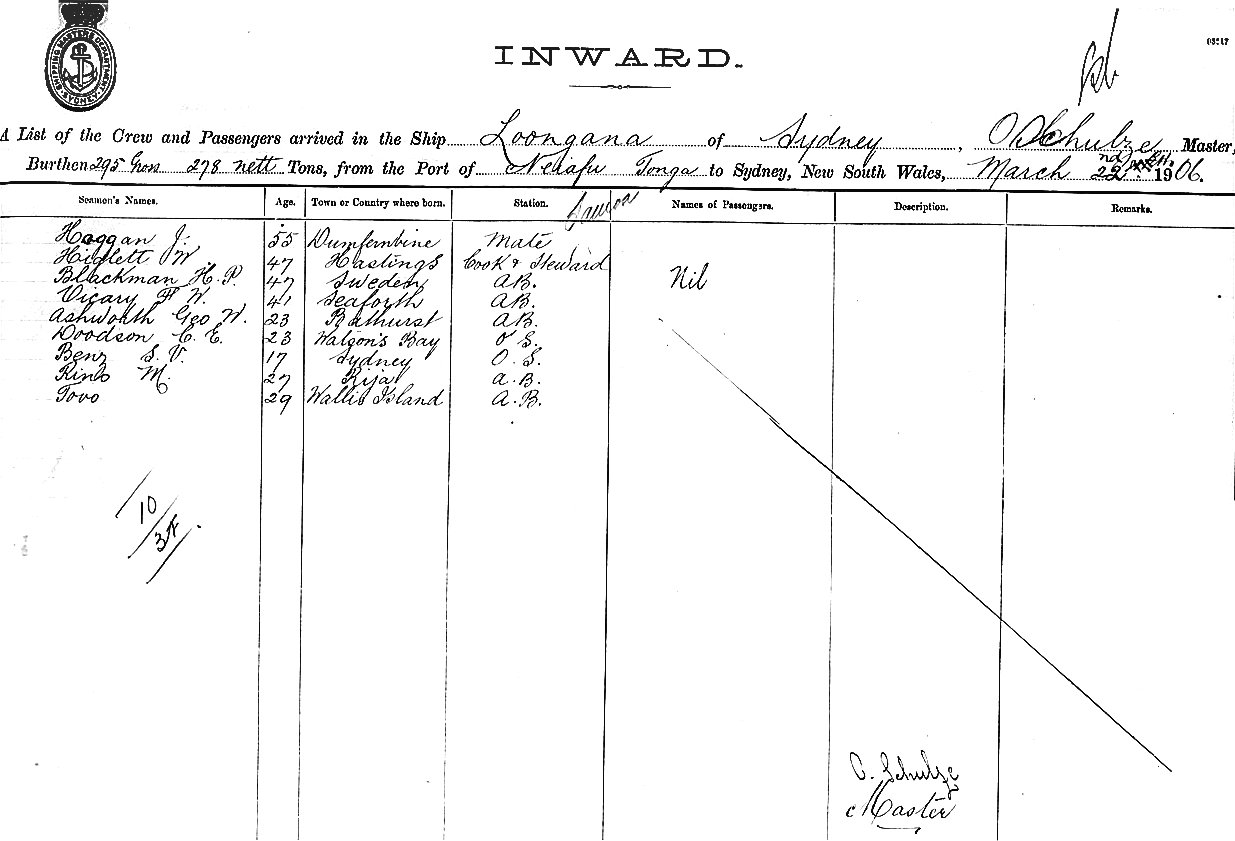 SHIPPING MASTERS DEPARTMENT SYDNEY
INWARD.
A List of the Crew and Passengers arrived in the Ship Loongana of Sydney, O Schulze Master,
Burthen 295 Gross 278 nett Tons, from the Port of Neiafu Tonga to Sydney, New South Wales, March 22nd 1906.
Seamen's Names. Age. Town or Country where born. Station. Names of Passengers. Description. Remarks.
Hoggan J. 55 Dumfermbine Mate
Higlett W. 47 Hastings Cook & Steward
Blackman H. P. 47 Sweden A.B. Nil
Vicary F W. 41 Seaforth A.B.
Ashworth Geo W. 23 Bathurst A.B.
Doodson C. E. 23 Watson's Bay O S.
Benz S. V. 17 Sydney O. S.
M. 27 A.B.
Tovo 29 Wallis Island A.B.
10
C. Schulze
Master